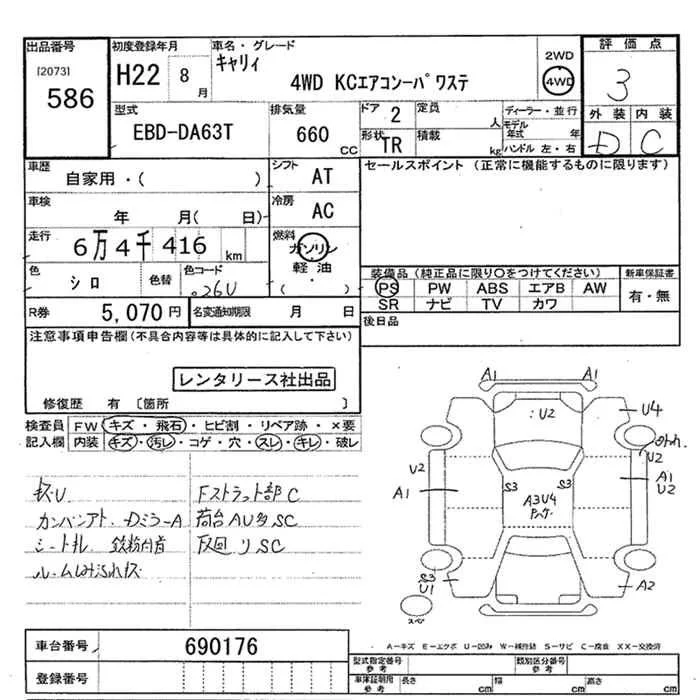 出品番号 初度登録年月 車名・グレード 2WD 評価点
[2073] H22 8月 キャリィ 4WD 3
586 4WD KCエアコンーパワステ
型式 排気量 ドア 2 定員 人 ディーラー・並行 外装 内装
EBD-DA63T 660 CC 形状 TR 積載 kg モデル年式 年 D C
ハンドル 左・右
車歴 シフト AT セールスポイント (正常に機能するものに限ります)
自家用・( )
車検 年 月( 日) 冷房 AC
走行 6万4千416 km 燃料 ガソリン
軽油
( )
色 シロ 色替 色コード 26U
装備品 (純正品に限り○をつけてください) 新車保証書
PS PW ABS エアB AW 有・無
SR ナビ TV カワ
R券 5,070円 名変通知期限 月 日 後日品
注意事項申告欄 (不具合内容等は具体的に記入して下さい)
レンタリース社出品
修復歴 有 [箇所 ]
検査員 FW キズ・飛石・ヒビ割・リペア跡・×要
記入欄 内装 キズ・汚レ・コゲ・穴・スレ・キレ・破レ
キズU Fストラット部C
カンバンアト. DミラーA 荷台AU多SC
シート 鉄粉
A1 A1
U2 U4
U2 U2
A1 S3 S3 A1
A3U4 U2
S3
U1 A2
スペア
A-キズ E-エクボ W-補修跡 S-サビ C-腐食 XX-交換済
車台番号 690176
登録番号
型式指定番号 参考 類別区分番号 参考
車庫証明用 参考 長さ cm 幅 cm 高さ cm